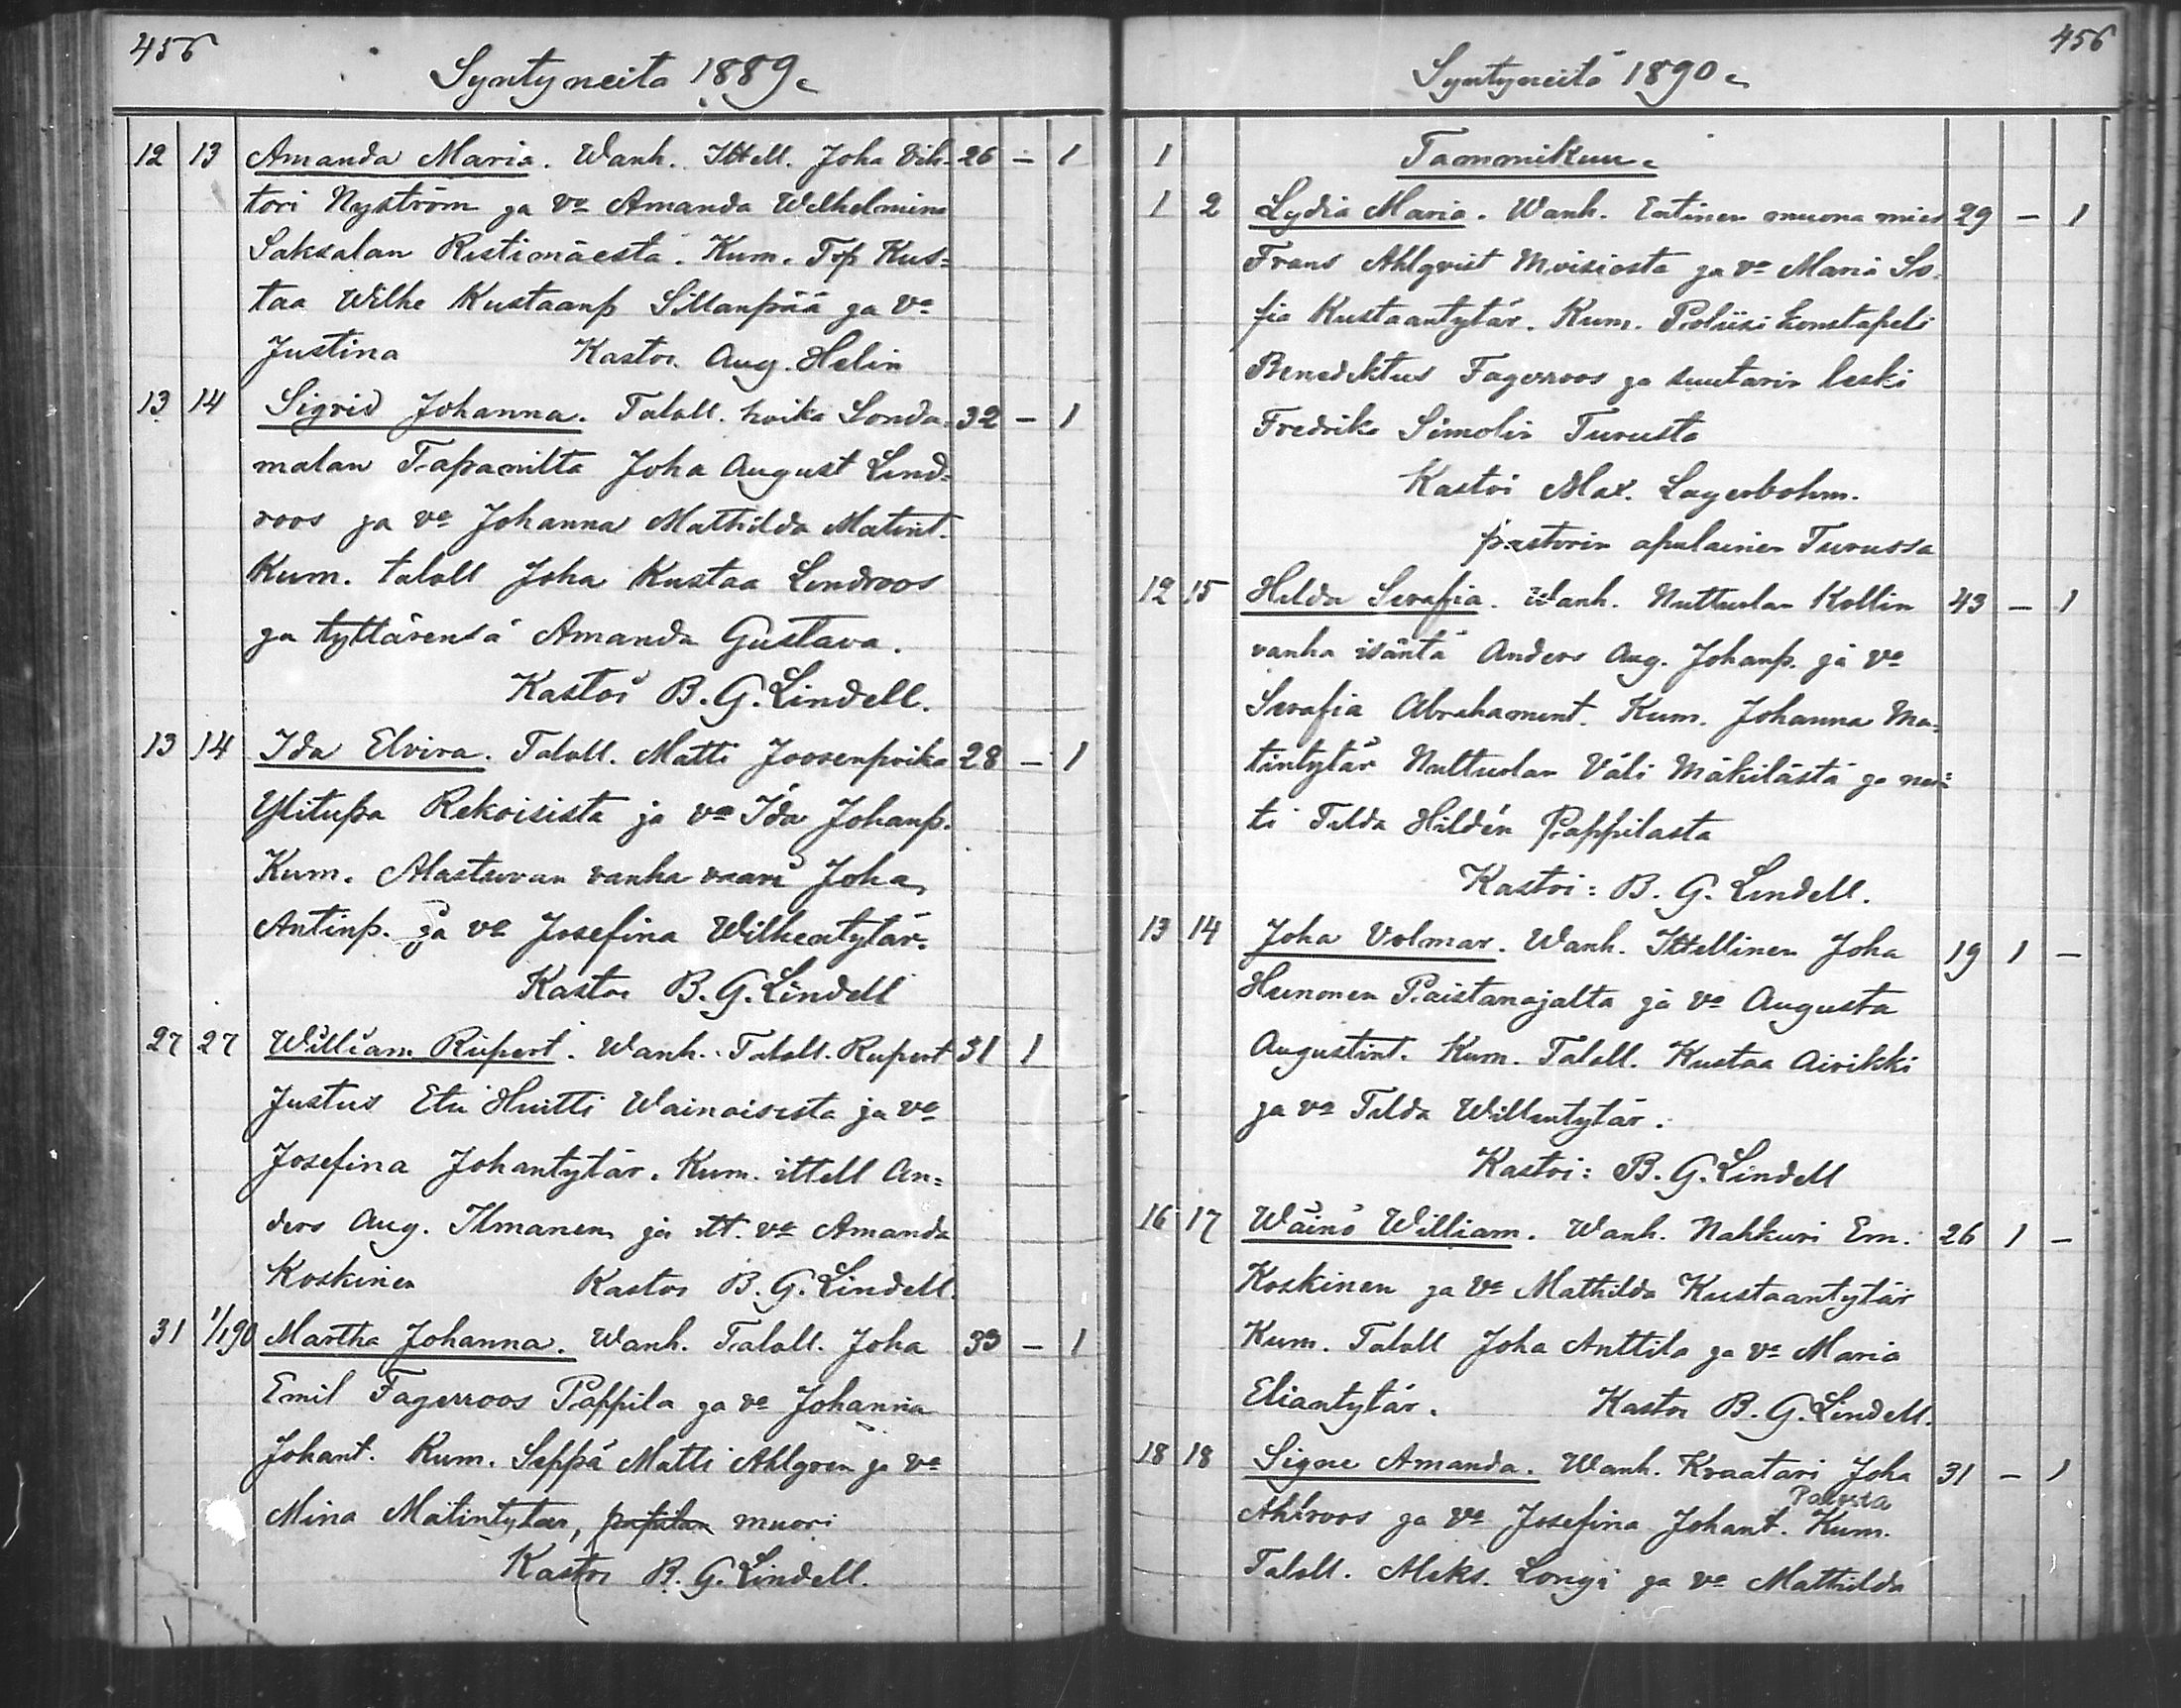 456
Syntyneitä 1889.
12 13 Amanda Maria. Wanh. Ittell. Joha Vih- 26 – 1
tori Nyström ja vo Amanda Wilhelmina
Saksalan Ristimäestä. Kum. Trp Kus-
taa Wilhe Kustaanp Sillanpää ja Vo
Justina Kastoi Aug. Helin
13 14 Sigrid Johanna. Talall. poika Sonda- 32 – 1
malan Tapanilta Joha August Lind-
roos ja vo Johanna Mathilda Matint.
Kum. talall Joha Kustaa Lindroos
ja tyttärensä Amanda Gustava.
Kastoi B. G. Lindell.
13 14 Ida Elvira. Talall. Matti Joosenpoika 28 – 1
Ylitupa Rekoisista ja vo Ida Johanp.
Kum. Alastuvan vanha vaari Joha
Antinp. ja vo Josefina Wilhentytär.
Kastoi B. G. Lindell
27 27 William Rupert. Wanh. Talall. Rupert 31 1
Justus Etu Huitti Wainoisista ja vo
Josefina Johantytär. Kum. ittell An-
ders Aug. Ilmanen ja itt. vo Amanda
Koskinen Kastoi B. G. Lindell.
31 1/1 90 Martha Johanna. Wanh. Talall. Joha 33 – 1
Emil Fagerroos Pappila ja vo Johanna
Johant. Kum. Seppä Matti Ahlgren ja vo
Mina Matintytär, muori
Kastoi B. G. Lindell.
456
Syntyneitä 1890.
1 Tammikuu.
1 2 Lydia Maria. Wanh. Entinen muona mies 29 – 1
Frans Ahlqvist Moisiosta ja vo Maria So-
fia Kustaantytär. Kum. Poliisi konstapeli
Benediktus Fagerroos ja suutarin leski
Fredrika Simolin Turusta
Kastoi Max. Lagerbohm.
pastorin apulainen Turussa
12 15 Hilda Serafia. Wanh. Nuttuolan Kollin 43 – 1
vanha isäntä Anders Aug. Johanp. ja vo
Serafia Abrahamint. Kum. Johanna Ma-
tintytär Nuttuolan Väli Mäkilästä ja nei-
ti Tilda Hildén Pappilasta
Kastoi: B. G. Lindell.
13 14 Joha Volmar. Wanh. Ittellinen Joha 19 1 –
Heinonen Paistanojalta ja vo Augusta
Augustint. Kum. Talall. Kustaa Airikki
ja vo Tilda Willentytär.
Kastoi: B. G. Lindell
16 17 Wäinö William. Wanh. Nahkuri Em. 26 1 –
Koskinen ja Vo Mathilda Kustaantytär
Kum. Talall Joha Anttila ja vo Maria
Eliantytär. Kastoi B. G. Lindell.
18 18 Signe Amanda. Wanh. Kraatari Joha 31 – 1
Ahlroos ja Vo Josefina Johant. Kum.
Talall. Aleks. Longi ja vo Mathilda